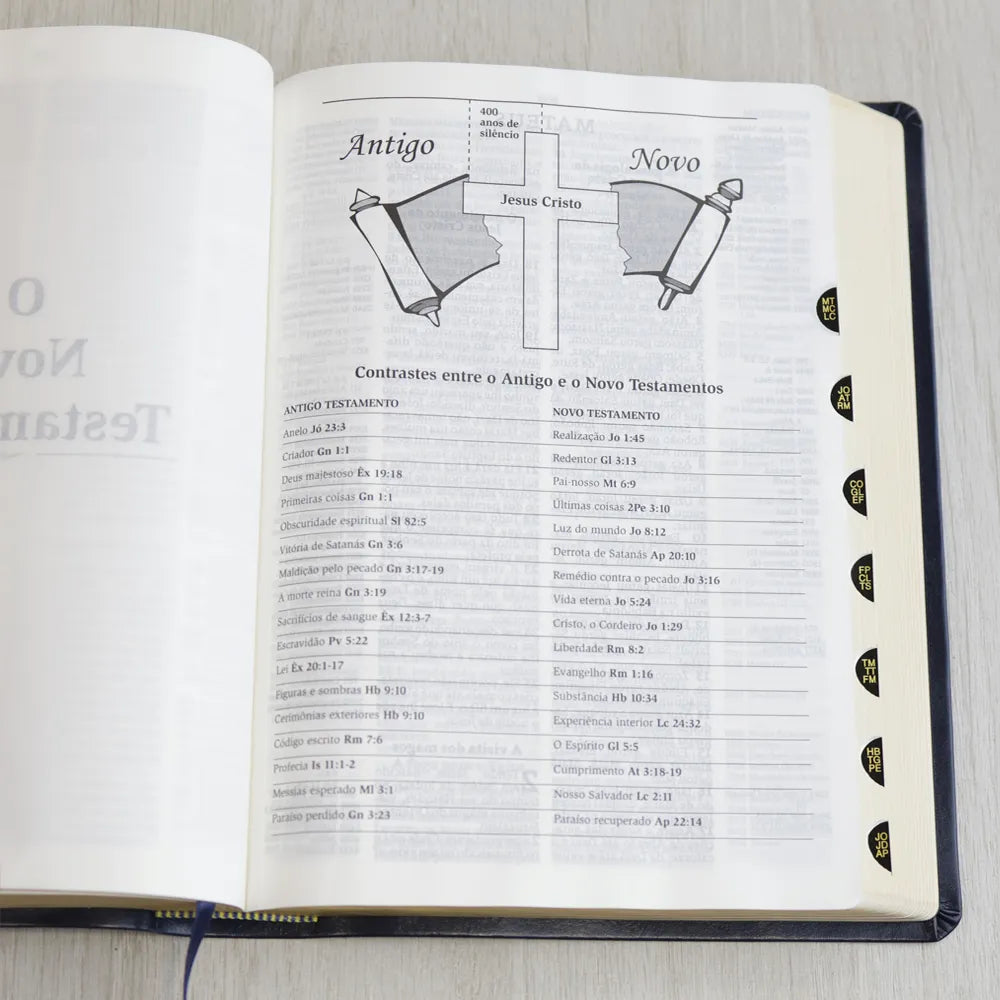 400
anos de
silêncio
Antigo
Novo
Jesus Cristo
Contrastes entre o Antigo e o Novo Testamentos
ANTIGO TESTAMENTO NOVO TESTAMENTO
Anelo Jó 23:3 Realização Jo 1:45
Criador Gn 1:1 Redentor Gl 3:13
Deus majestoso Êx 19:18 Pai-nosso Mt 6:9
Primeiras coisas Gn 1:1 Últimas coisas 2Pe 3:10
Obscuridade espiritual Sl 82:5 Luz do mundo Jo 8:12
Vitória de Satanás Gn 3:6 Derrota de Satanás Ap 20:10
Maldição pelo pecado Gn 3:17-19 Remédio contra o pecado Jo 3:16
A morte reina Gn 3:19 Vida eterna Jo 5:24
Sacrifícios de sangue Êx 12:3-7 Cristo, o Cordeiro Jo 1:29
Escravidão Pv 5:22 Liberdade Rm 8:2
Lei Êx 20:1-17 Evangelho Rm 1:16
Figuras e sombras Hb 9:10 Substância Hb 10:34
Cerimônias exteriores Hb 9:10 Experiência interior Lc 24:32
Código escrito Rm 7:6 O Espírito Gl 5:5
Profecia Is 11:1-2 Cumprimento At 3:18-19
Messias esperado Ml 3:1 Nosso Salvador Lc 2:11
Paraíso perdido Gn 3:23 Paraíso recuperado Ap 22:14
MT
MC
LC
JO
AT
RM
CO
GL
EF
FP
CL
TS
TM
TT
FM
HB
TG
PE
JO
JD
AP
O
Nov
Testam